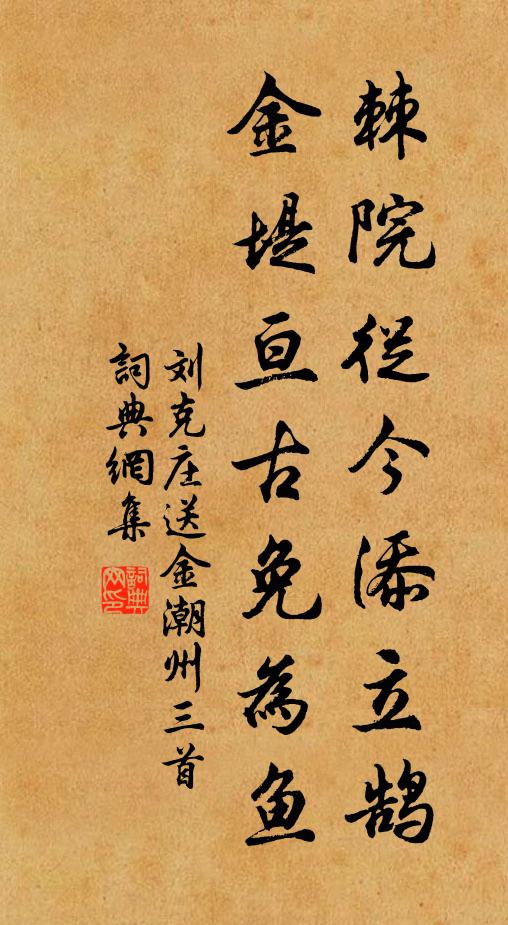 棘院從今添立鹄
金堤亘古免為鱼
刘克庄送金潮州三首
詞典網集
詞典
网印